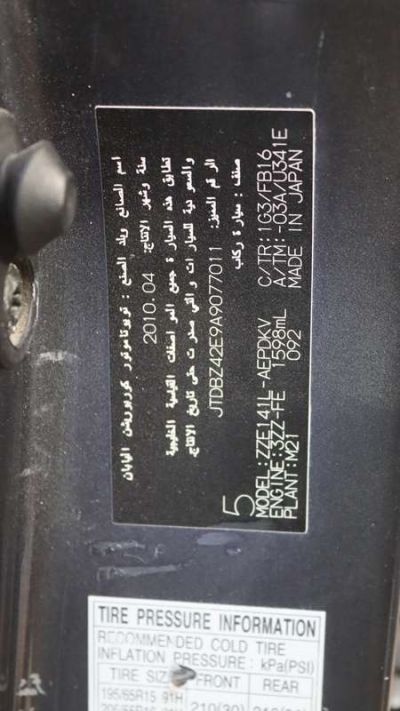 اسم الصانع وبلد الصنع : تويوتا موتور كوربوريشن اليابان
سنة وشهر الإنتاج: 2010.04
تطابق هذه السيارة جميع المواصفات القياسية الخليجية
والسعودية للسيارات والتي صدرت حتى تاريخ الإنتاج.
الرقم المميز: JTDBZ42E9A9077011
صنف: سيارة ركاب
5
MODEL:ZZE141L-AEPDKV C/TR:1G3/FB16
ENGINE:3ZZ-FE 1598mL A/TM:-03A/U341E
PLANT:M21 092 MADE IN JAPAN
TIRE PRESSURE INFORMATION
RECOMMENDED COLD TIRE
INFLATION PRESSURE : kPa(PSI)
TIRE SIZE FRONT REAR
195/65R15 91H 210(30)